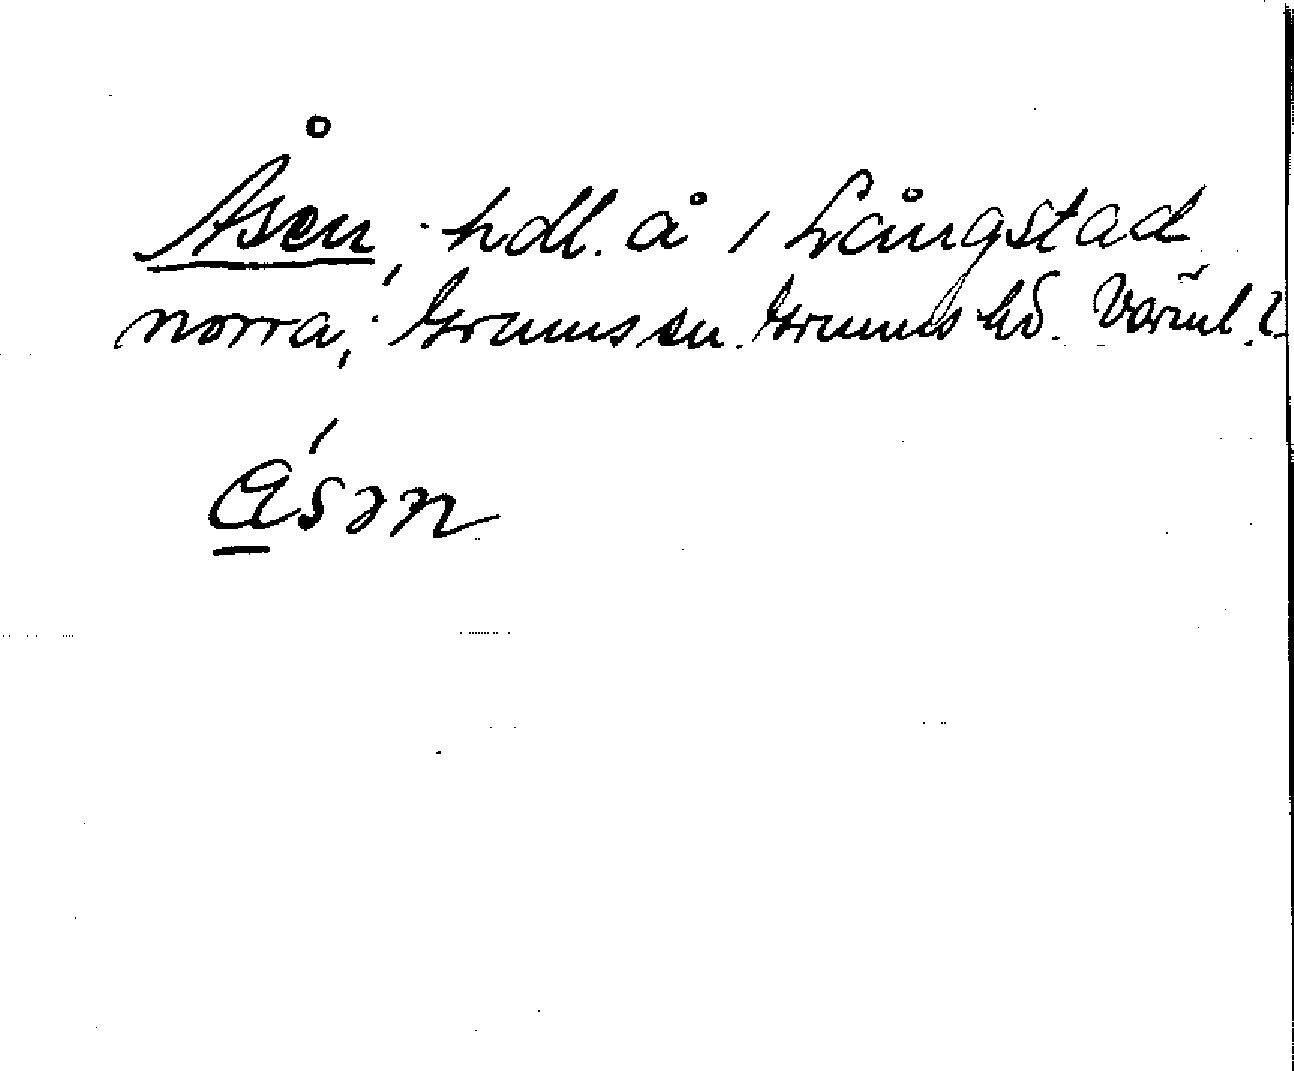 Åsen, hdl. å / Långstad
norra, Grums sn. Grums hd. Värml. l
åsən